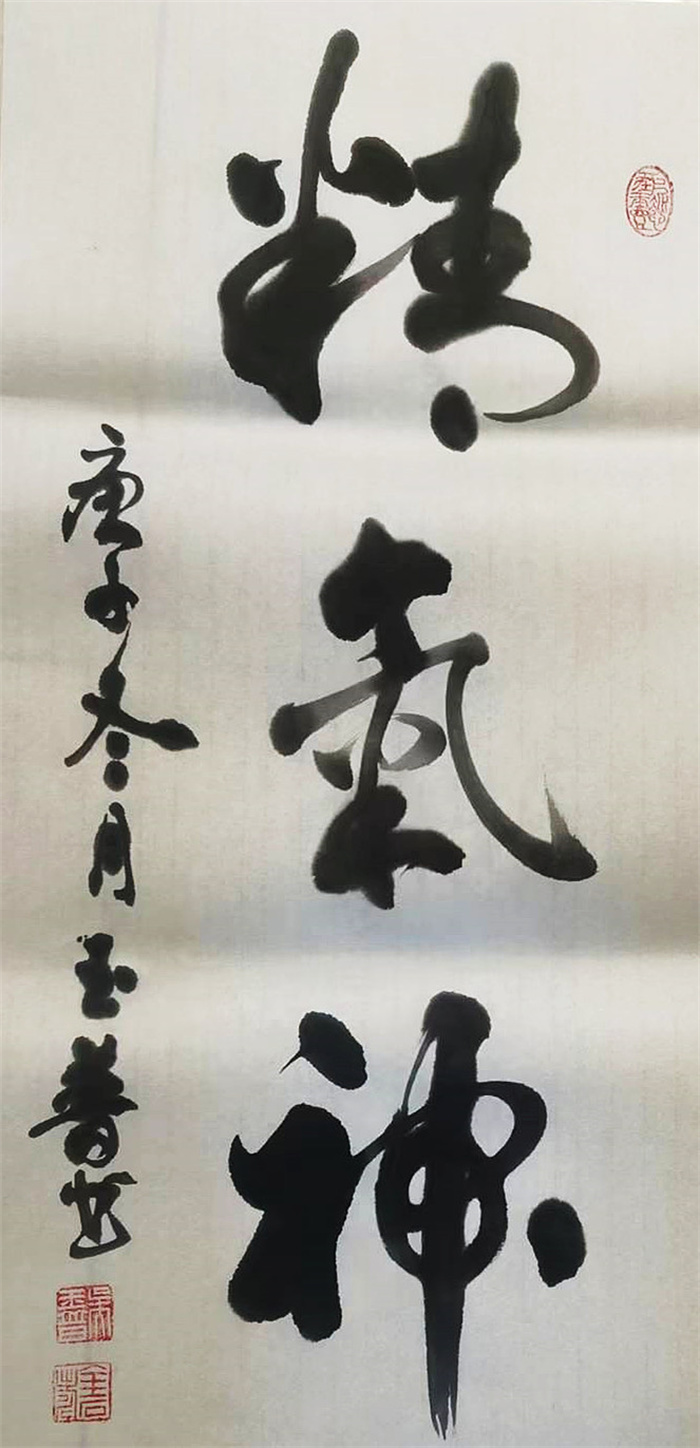 精氣神
庚子冬月玉普书